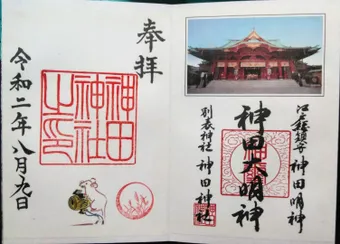 江戸總鎮守 神田明神
神田大明神
別表神社 神田神社
奉拝
神田神社之印
令和二年八月九日